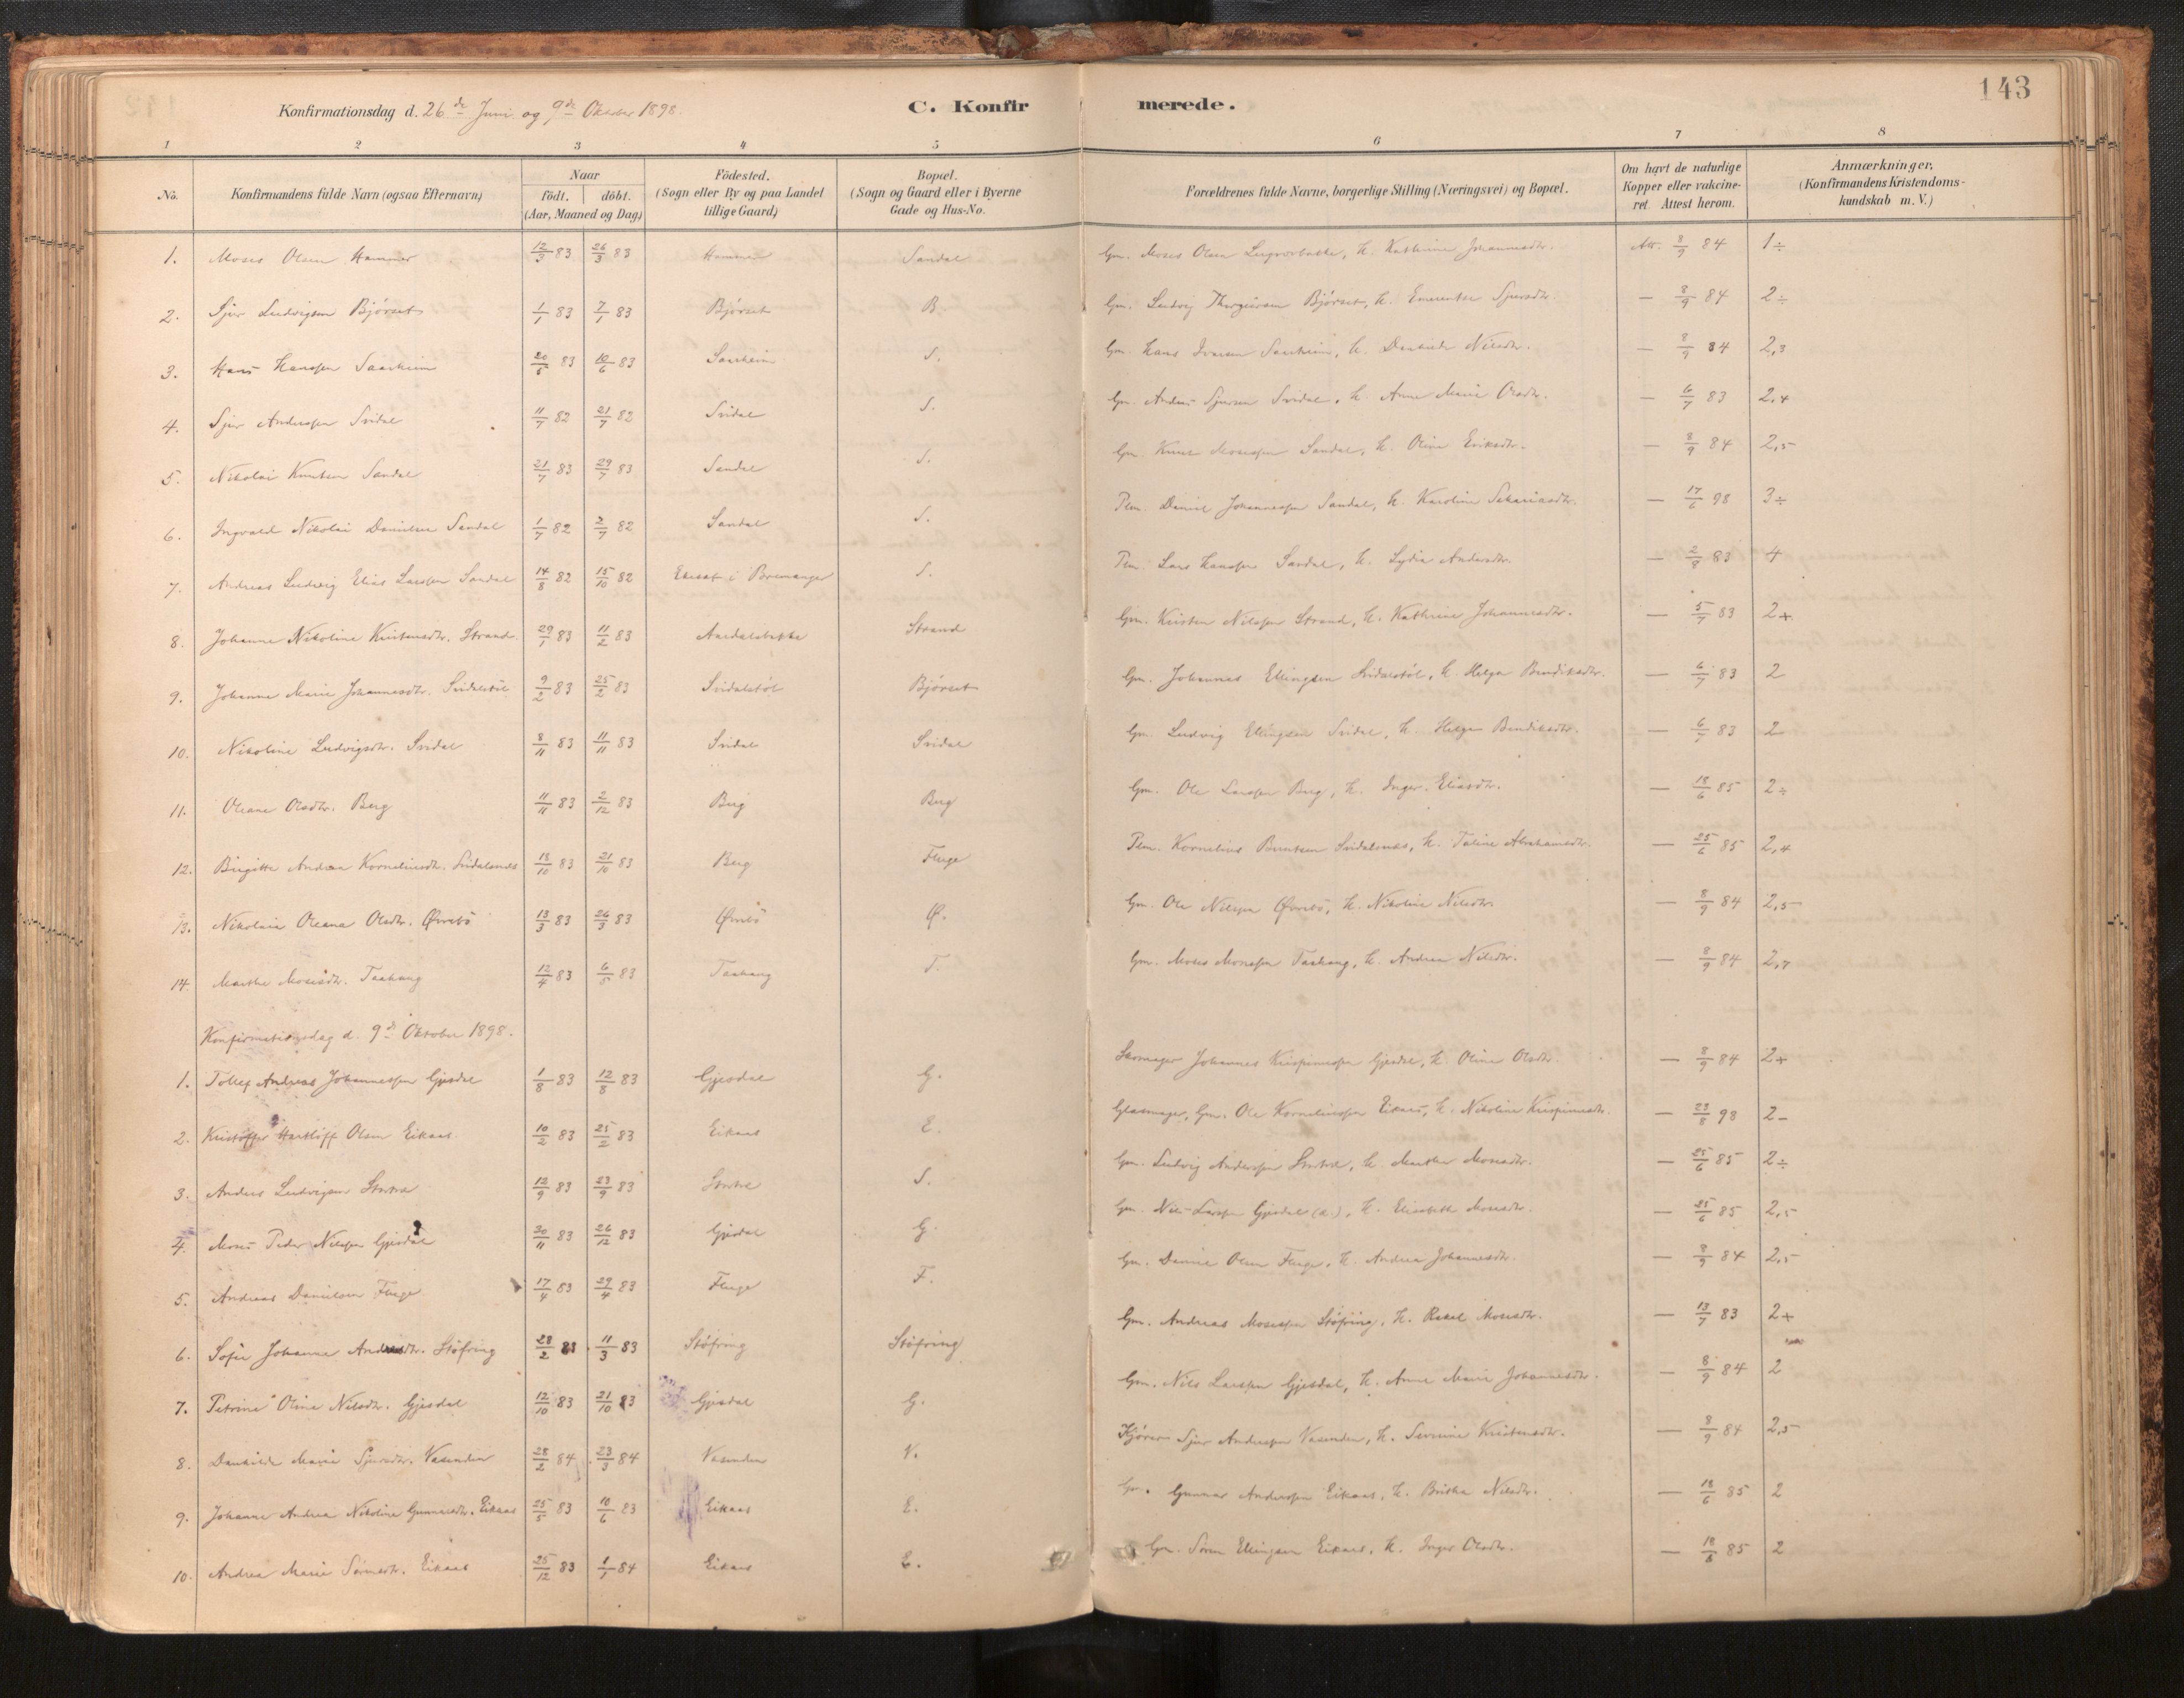 143
Konfirmationsdag d. 26de Juni og 9de Oktober 1898.
C. Konfirmerede.
1 2 3 4 5 6 7 8
No.
Konfirmandens fulde Navn (ogsaa Efternavn)
Naar
födt. döbt.
(Aar, Maaned og Dag)
Födested.
(Sogn eller By og paa Landet
tillige Gaard)
Bopæl.
(Sogn og Gaard eller i Byerne
Gade og Hus-No.
Forældrenes fulde Navne, borgerlige Stilling (Næringsvei) og Bopæl.
Om havt de naturlige
Kopper eller vakcine-
ret. Attest herom.
Anmærkninger.
(Konfirmandens Kristendoms-
kundskab m. V.)
1. Moses Olsen Hammer 12/3 83 26/3 83 Hammer Sandal Gm. Moses Olsen, h. Kathrine Johannesdtr. Att. 8/9 84 1÷
2. Sjur Ludvigsen Bjørset 1/1 83 7/1 83 Bjørset B. Gm. Ludvig Bjørset, h. Emerentse Sjursdtr. — 8/9 84 2÷
3. Hans Hanssen Saarheim 20/5 83 10/6 83 Saarheim S. Gm. Hans Saarheim, h. Nilsdtr. — 8/9 84 2,3
4. Sjur Anderssen Svidal 11/7 82 21/7 82 Svidal S. Gm. Anders Sjursen Svidal, h. Anne Marie Olsdtr. — 6/7 83 2,4
5. Nikolai Knutsen Sandal 21/7 83 29/7 83 Sandal S. Gm. Knut Mosessen Sandal, h. Oline Eriksdtr. — 8/9 84 2,5
6. Ingvald Nikolai Danielsen Sandal 1/7 82 2/7 82 Sandal S. Pm. Daniel Johannessen Sandal, h. Karoline Sakariasdtr. — 17/6 98 3÷
7. Andreas Ludvig Elias Larssen Sandal 14/8 82 15/10 82 i Bremanger S. Pm. Lars Hanssen Sandal, h. Lydia Andersdtr. — 2/8 83 4
8. Johanne Nikoline Kristensdtr. Strand 29/1 83 11/2 83 Aardalsbakke Strand Gm. Kristen Nilssen Strand, h. Kathrine Johannesdtr. — 5/7 83 2+
9. Johanne Marie Johannesdtr. Svidalstöl 9/2 83 25/2 83 Svidalstöl Bjørset Gm. Johannes Ellingsen Svidalstöl, h. Helga Bendiksdtr. — 6/7 83 2
10. Nikoline Ludvigsdtr. Svidal 8/11 83 11/11 83 Svidal Svidal Gm. Ludvig Ellingsen Svidal, h. Helga Bendiksdtr. — 6/7 83 2
11. Oleane Olsdtr. Berg 11/11 83 2/12 83 Berg Berg Gm. Ole Larssen Berg, h. Inger Eliasdtr. — 18/6 85 2÷
12. Birgitte Andrea Korneliusdtr. Svidalsnes 18/10 83 21/10 83 Berg Fluge Pm. Kornelius Berntsen Svidalsnes, h. Taline Abrahamsdtr. — 25/6 85 2,4
13. Nikolaia Oleana Olsdtr. Ørnebö 13/3 83 26/3 83 Ørnebö Ø. Gm. Ole Nilssen Ørnebö, h. Nikoline Nilsdtr. — 8/9 84 2,5
14. Marthe Mosesdtr. Taakang 12/4 83 6/5 83 Taakang T. Gm. Moses Monssen Taakang, h. Andrea Nilsdtr. — 8/9 84 2,7
Konfirmationsdag d. 9de Oktober 1898.
1. Tollef Andreas Johannessen Gjesdal 1/8 83 12/8 83 Gjesdal G. Skomager Johannes Krispinussen Gjesdal, h. Oline Olsdtr. — 8/9 84 2+
2. Kristoffer Hartloff Olsen Eikaas 10/2 83 25/2 83 Eikaas E. Glasmager, Gm. Ole Korneliussen Eikaas, h. Nikoline Krispinusdtr. — 23/8 98 2-
3. Anders Ludvigsen 12/9 83 23/9 83 S. Gm. Ludvig Anderssen, h. Marthe Mosesdtr. — 25/6 85 2÷
4. Moses Peder Nilssen Gjesdal 30/11 83 26/12 83 Gjesdal G. Gm. Nils Larssen Gjesdal, h. Elisabeth Mosesdtr. — 25/6 85 2,5
5. Andreas Danielsen Fluge 17/4 83 29/4 83 Fluge F. Gm. Daniel Olsen Fluge, h. Andrea Johannesdtr. — 8/9 84 2,5
6. Sofie Johanna Andreasdtr. Stöfring 28/2 83 11/3 83 Stöfring Stöfring Gm. Andreas Mosessen Stöfring, h. Rakel Mosesdtr. — 13/7 83 2+
7. Petrina Olina Nilsdtr. Gjesdal 12/10 83 21/10 83 Gjesdal G. Gm. Nils Larssen Gjesdal, h. Anne Marie Johannesdtr. — 8/9 84 2
8. Danhilde Marie Sjursdtr. Vasenden 28/2 84 23/3 84 Vasenden V. Sjur Anderssen Vasenden, h. Severine Kristensdtr. — 8/9 84 2,5
9. Johanne Andrea Nikoline Gunnarsdtr. Eikaas 25/5 83 10/6 83 Eikaas E. Gm. Gunnar Anderssen Eikaas, h. Britha Nilsdtr. — 18/6 85 2
10. Andrea Marie Sörensdtr. Eikaas 25/12 83 1/1 84 Eikaas E. Gm. Sören Ellingsen Eikaas, h. Inger Olsdtr. — 18/6 85 2